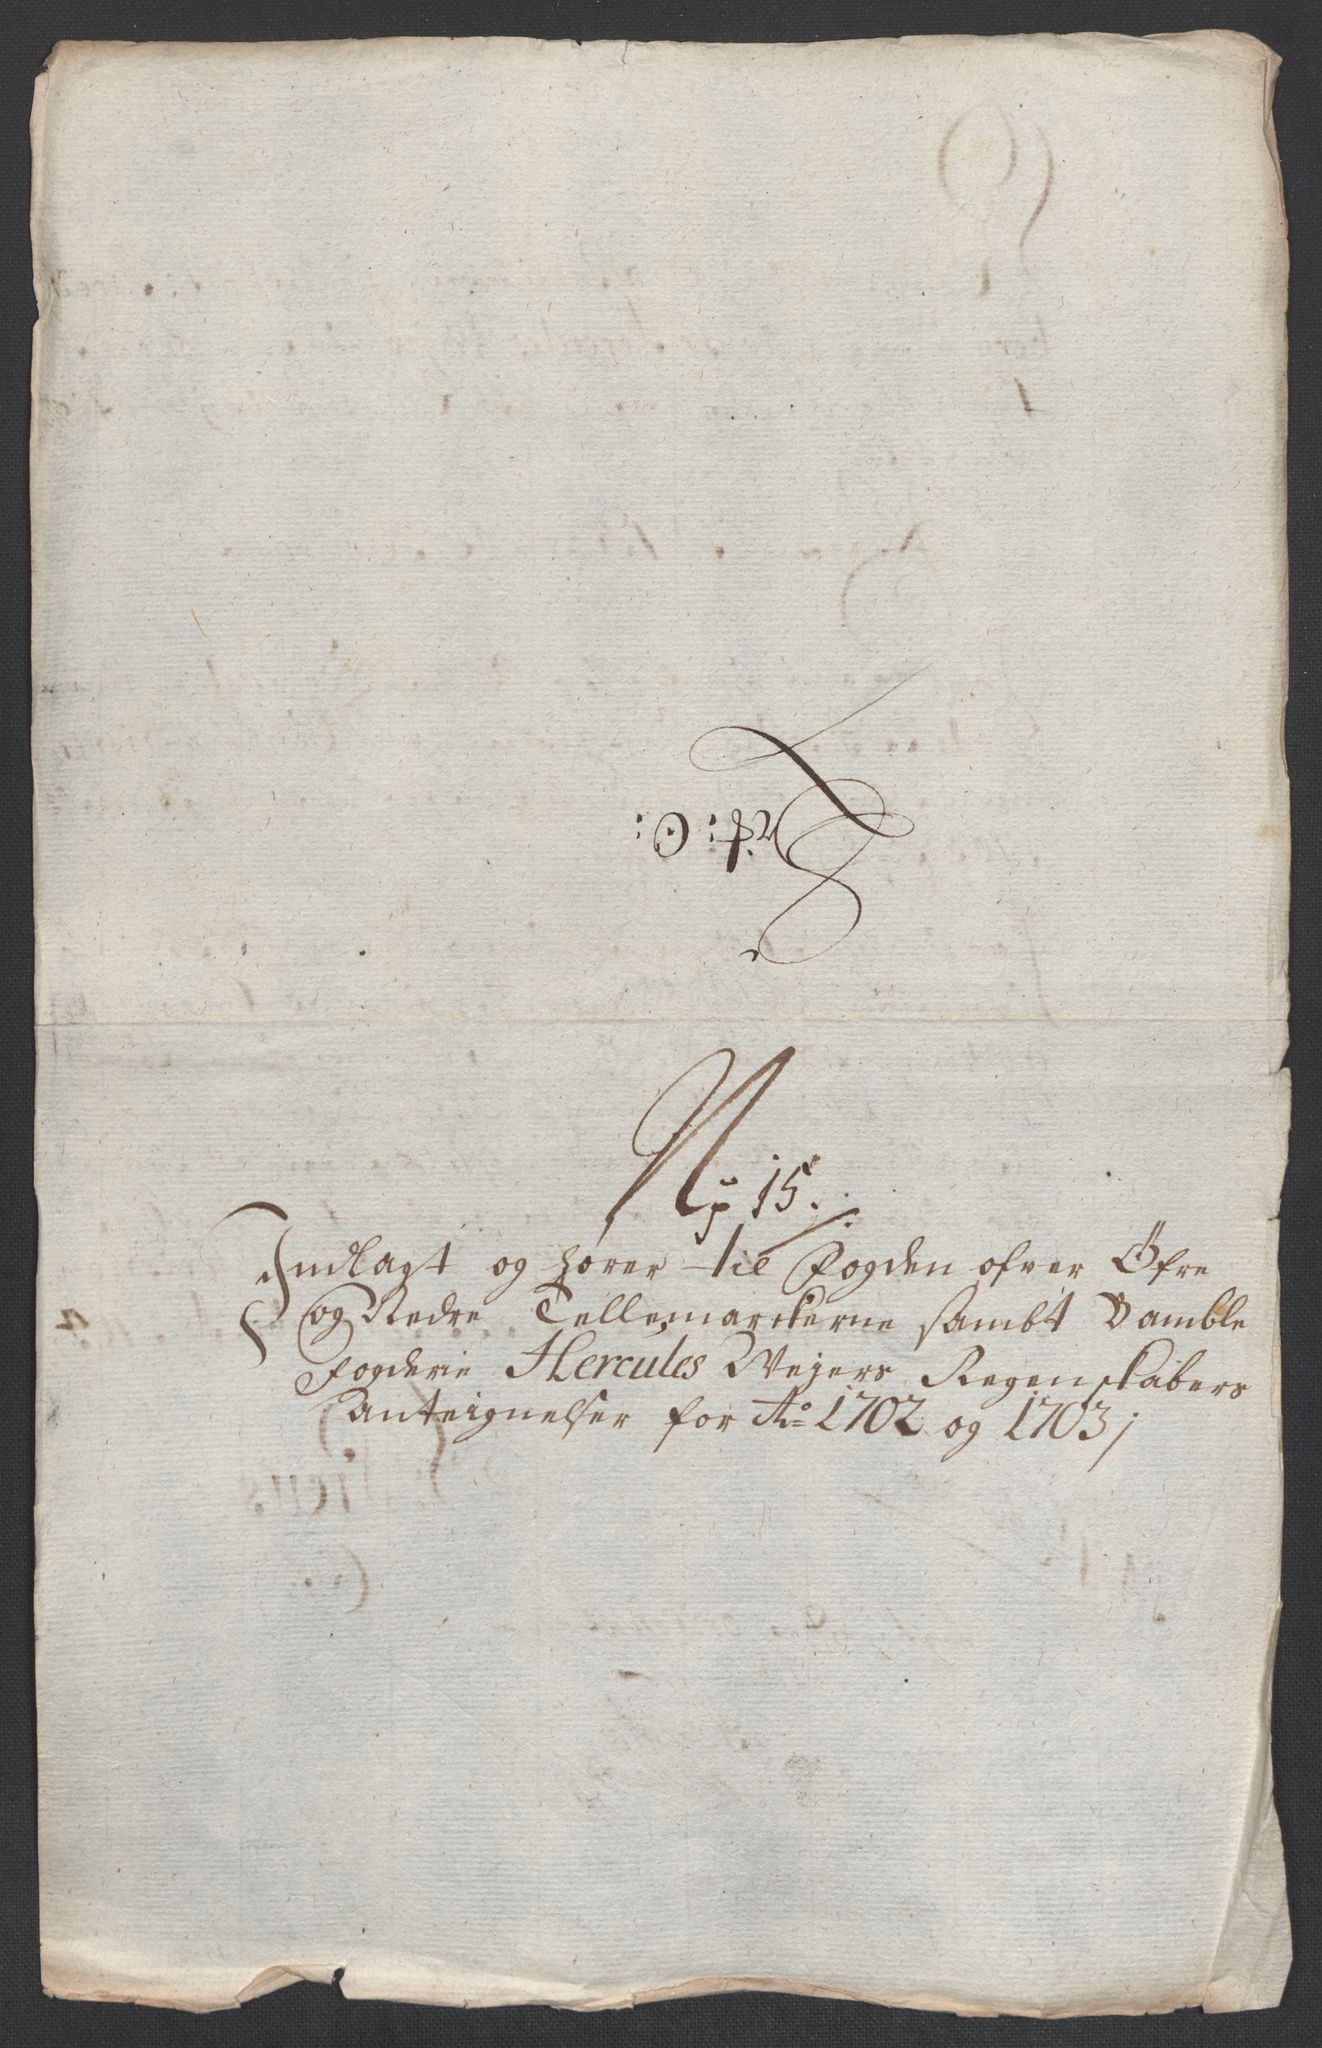 No 15.
Indlagt og hører til Fogden ofver Øfre
og Nedre Tellemarckerne sambt Bamble
Fogderie Hercules Weyers Regenskabers
Anteignelser for Ao 1702 og 1703